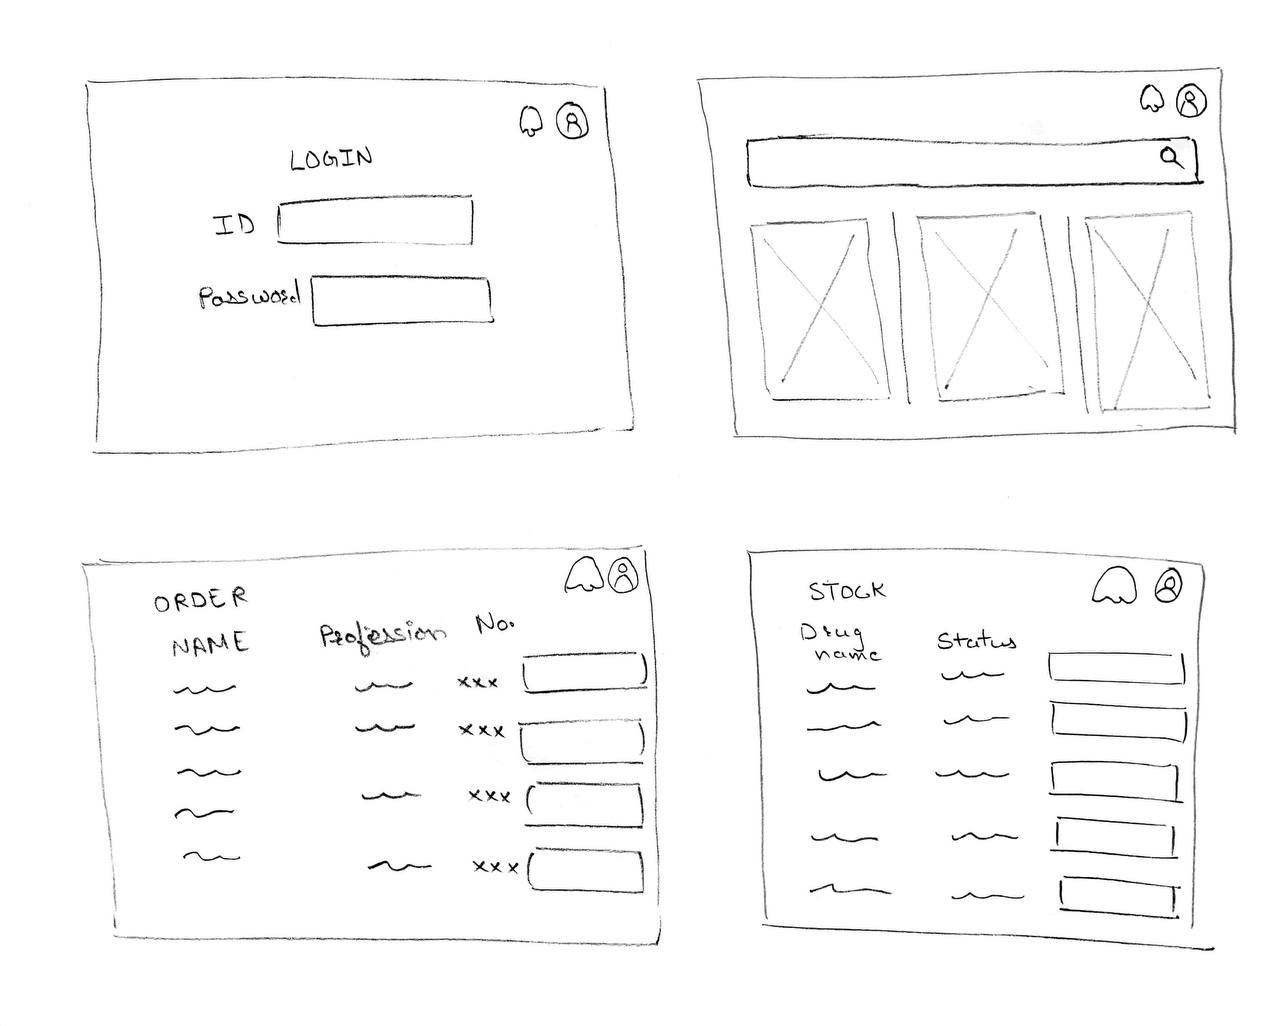 LOGIN
ID
Password
ORDER
NAME Profession No.
xxx
xxx
xxx
xxx
STOCK
Drug name Status